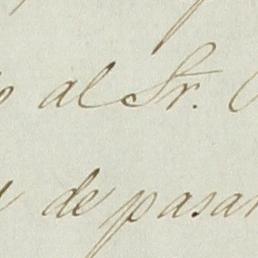 al Sr.
de pasar